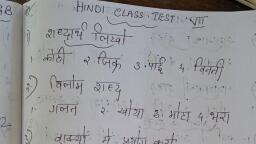 HINDI CLASS TEST VII
1) शब्दार्थ लिखो
1. कोठी 2 जिक्र 3. पाई 4 विनती
2) विलोम शब्द
गलत 2 खोया 3. मोटा 4. भरा
3) वाक्यों में प्रयोग करो